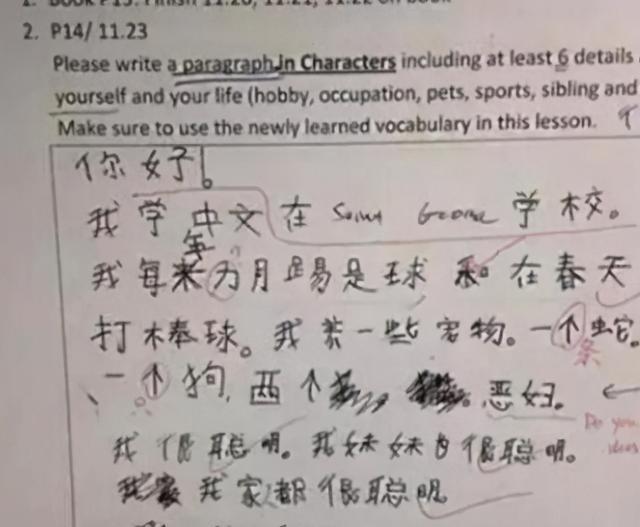 1. BOOK P13. Finish 11.20, 11.21, 11.22 on book
2. P14/ 11.23
Please write a paragraph in Characters including at least 6 details
yourself and your life (hobby, occupation, pets, sports, sibling and
Make sure to use the newly learned vocabulary in this lesson.
你好!。
我学中文在 学校。
年
我每来为月踢是球和在春天
打棒球。我养一些宠物。一个蛇。
条
、一个狗,两个 。恶妇。
Do you
我很聪明。我妹妹也很聪明。
ideas
我家都很聪明